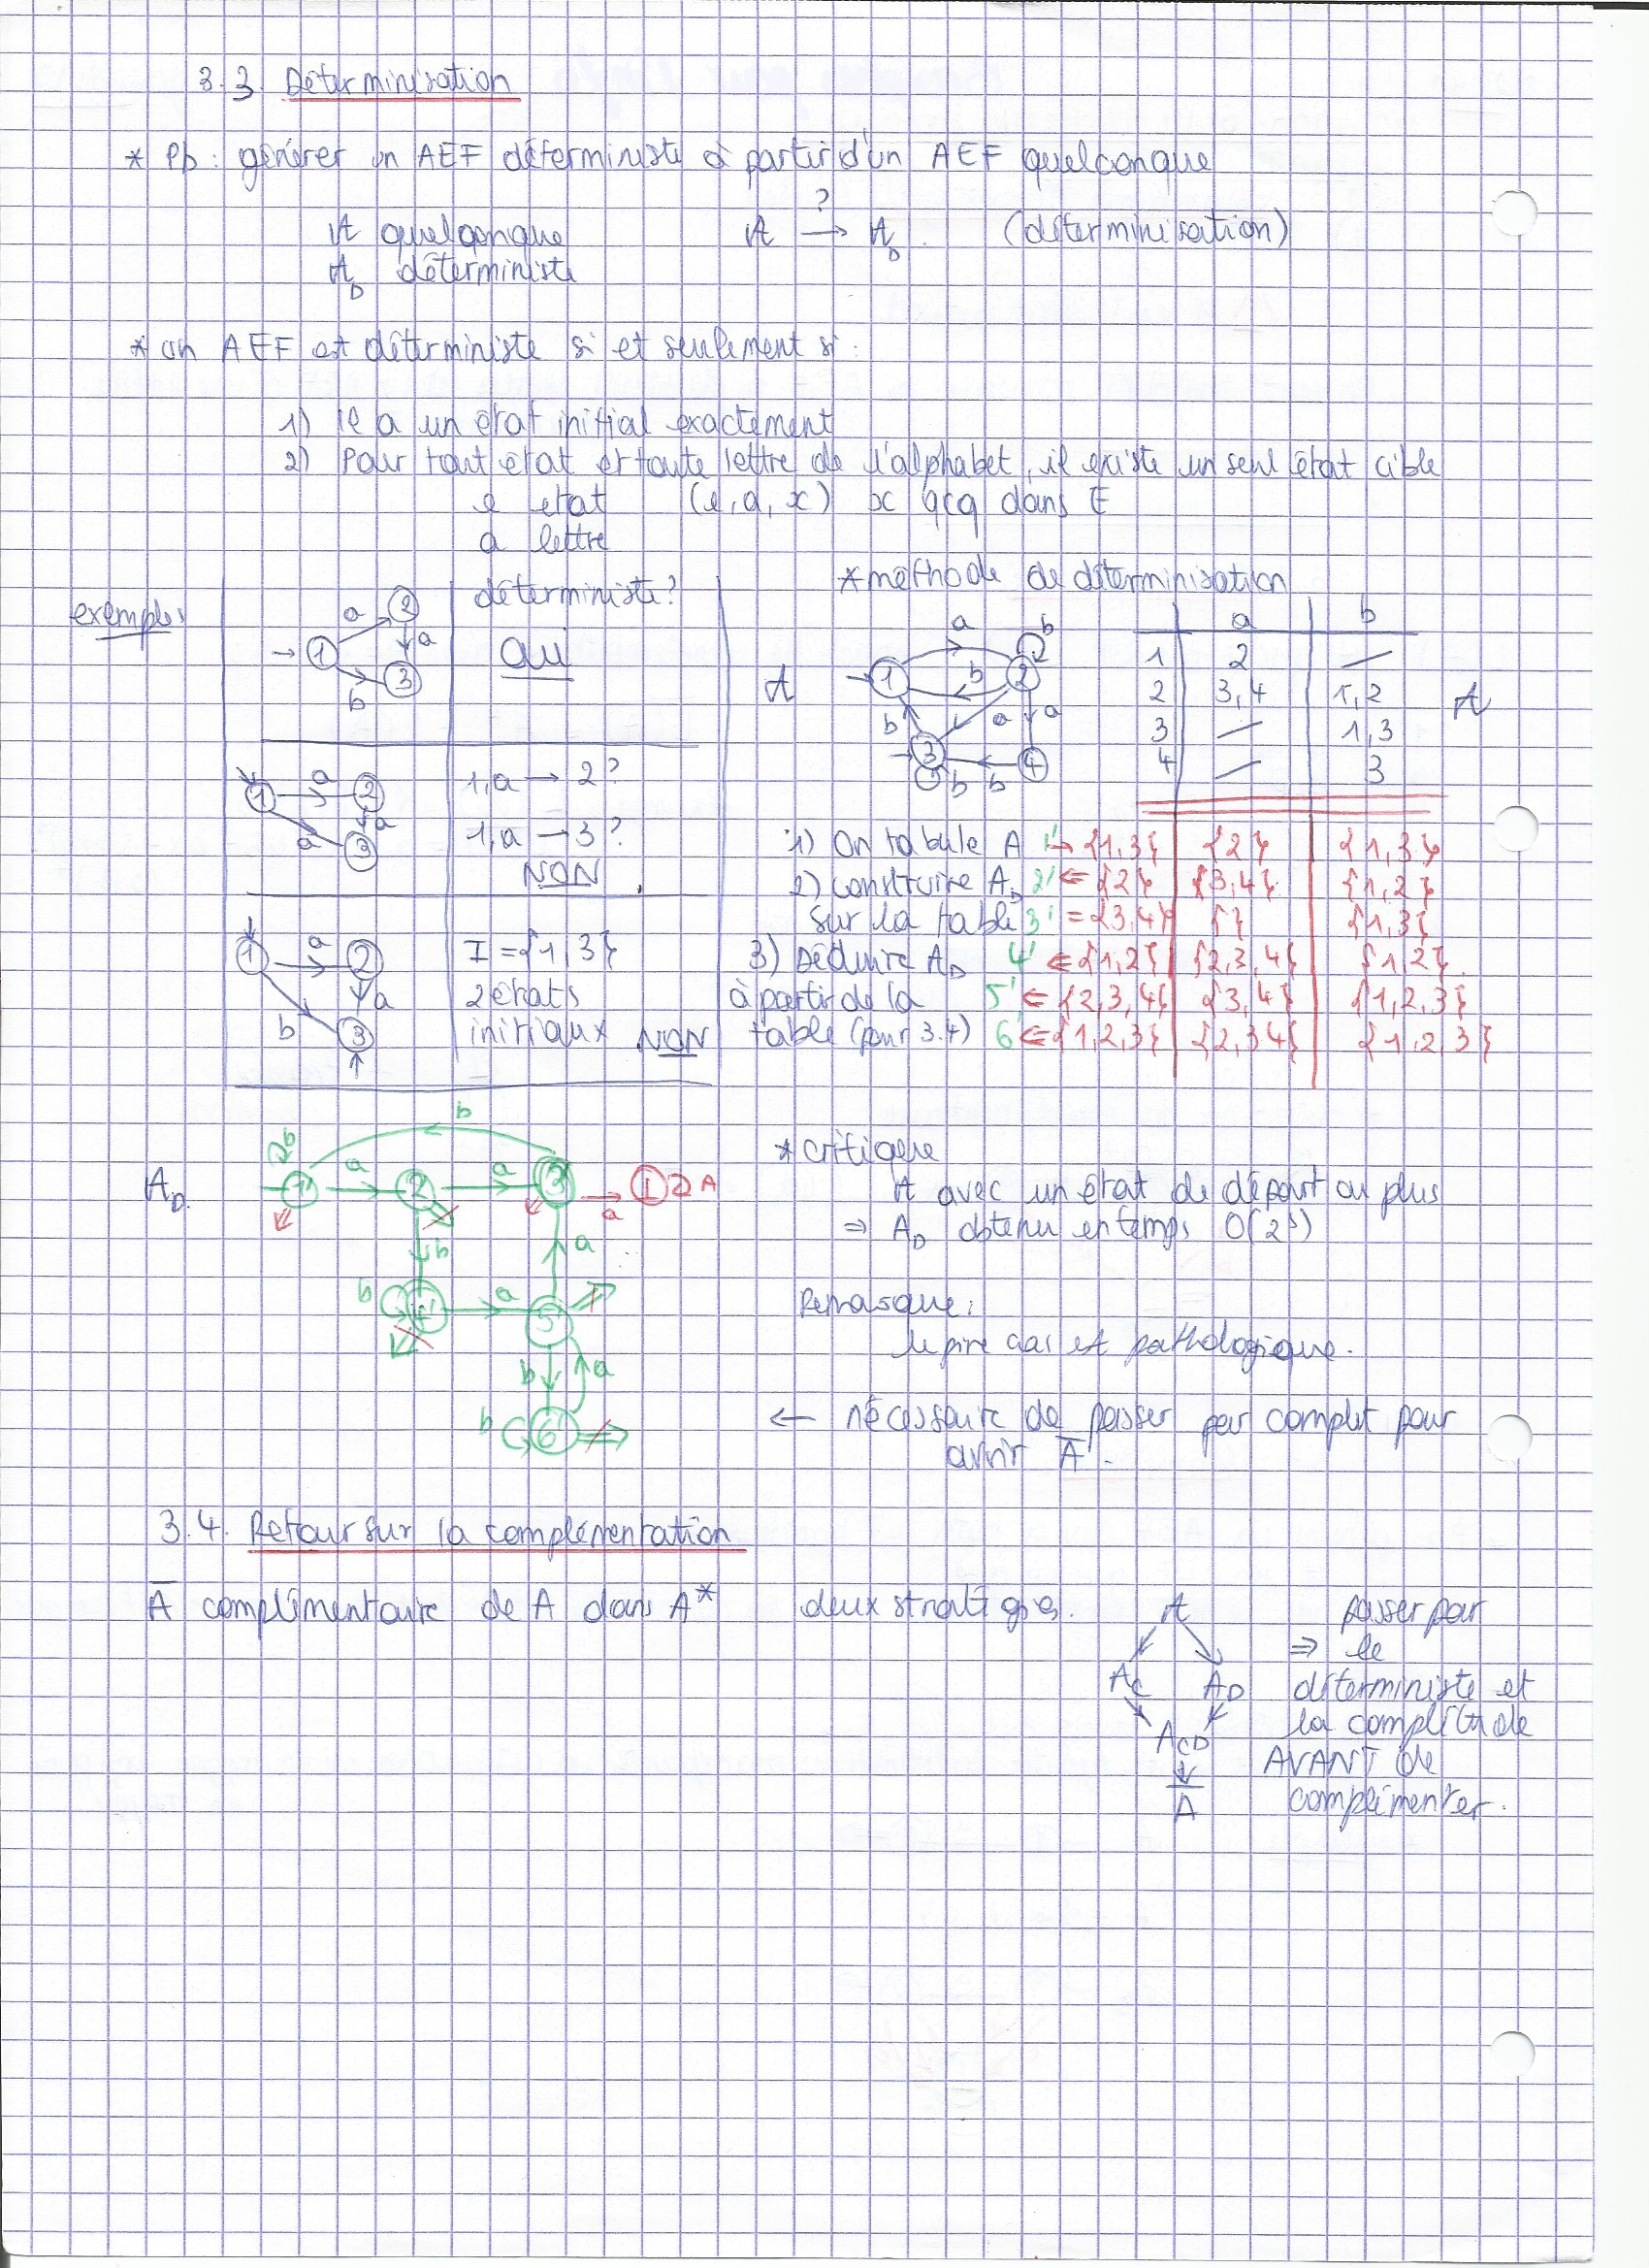 3.3. Déterminisation
* Pb : générer un AEF déterministe à partir d'un AEF quelconque
?
A quelconque A → A_D (déterminisation)
A_D déterministe
* un AEF est déterministe si et seulement si :
1) il a un état initial exactement
2) Pour tout état et toute lettre de l'alphabet, il existe un seul état cible
e état (e, a, x) x qcq dans E
a lettre
exemples
déterministe?
a 2
→ 1 a
b 3
OUI
1 a 2
a a
3
1,a → 2 ?
1,a → 3 ?
NON
1 a 2
b a
3
I = {1,3}
2 états
initiaux NON
* méthode de déterminisation
A
a b
1 b 2
b a a
3 b b 4
a b
1 2 —
2 3,4 1,2 A
3 — 1,3
4 — 3
1) On tabule A 1' → {1,3} {2} {1,3}
2) construire A_D 2' ⇐ {2} {3,4} {1,2}
sur la table 3' = {3,4} {} {1,3}
3) Déduire A_D 4' ⇐ {1,2} {2,3,4} {1,2}
à partir de la 5' ⇐ {2,3,4} {3,4} {1,2,3}
table (pour 3.4) 6' ⇐ {1,2,3} {2,3,4} {1,2,3}
b
b a a
A_D 1' 2' 3' a 1 A
b a
b 4' a 5'
b a
b 6'
* critique
A avec un état de départ ou plus
⇒ A_D obtenu en temps
Remarque :
le pire cas est pathologique.
← nécessaire de passer par complet pour
avoir A̅.
3.4. Retour sur la complémentation
A̅ complémentaire de A dans A* deux stratégies
A
A_C A_D
A_CD
↓
A̅
passer par
⇒ le
déterministe et
la complétude
AVANT de
complémenter.